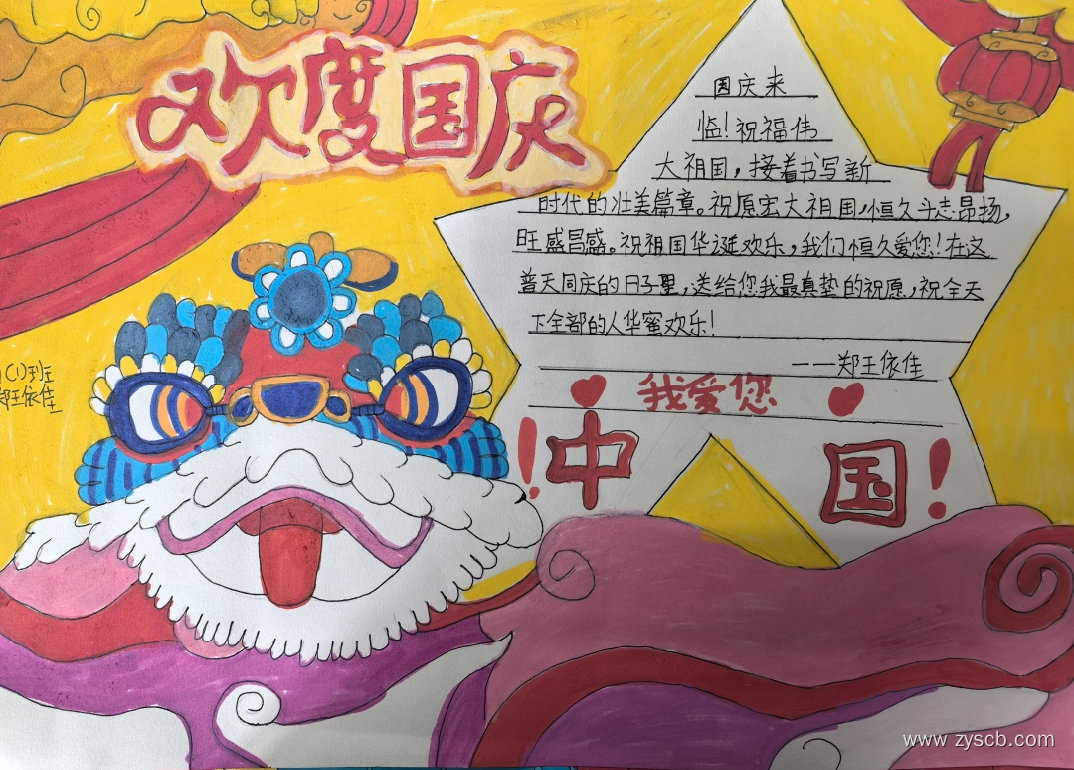 欢度国庆
国庆来
临!祝福伟
大祖国,接着书写新
时代的壮美篇章。祝愿宏大祖国,恒久斗志昂扬,
旺盛昌盛。祝祖国华诞欢乐,我们恒久爱您!在这
普天同庆的日子里,送给您我最真垫的祝愿,祝全天
下全部的人华蜜欢乐!
——郑王依佳
我爱您
!中国!
(1)班
郑王依佳
www.zyscb.com